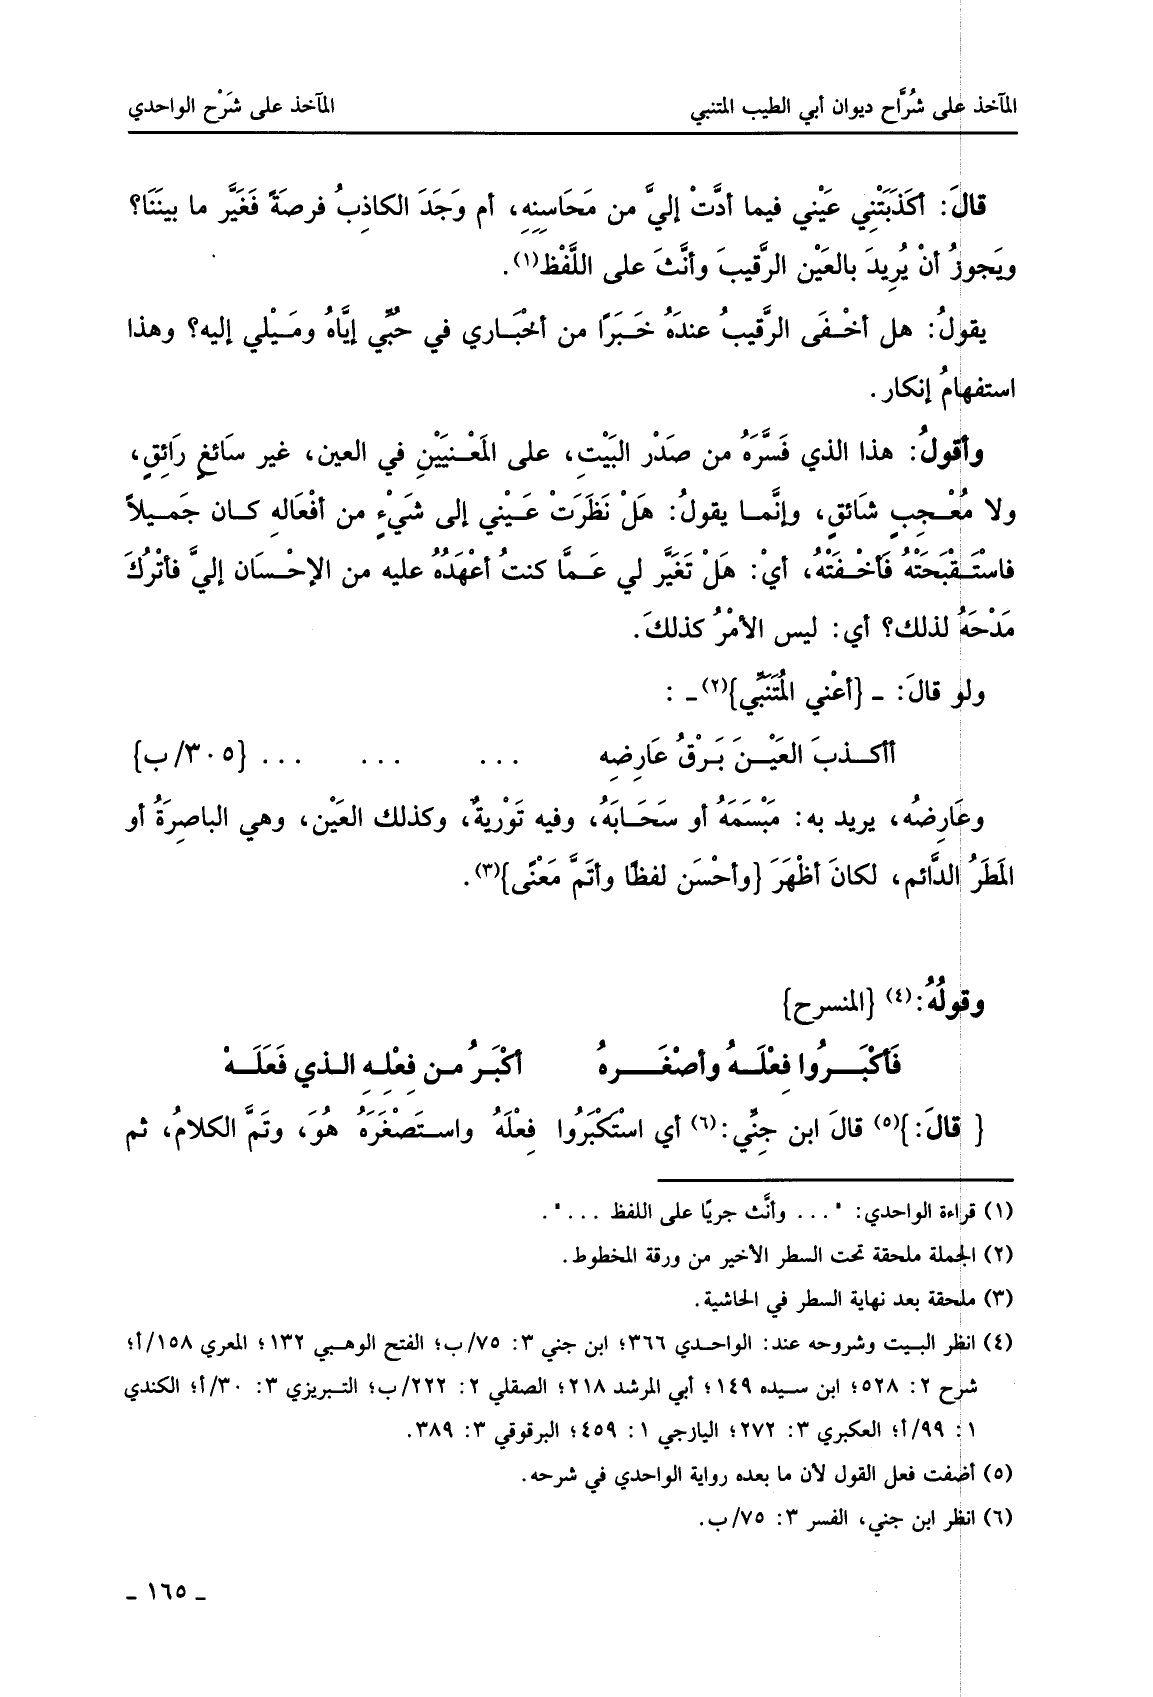 المآخذ على شُرَّاح ديوان أبي الطيب المتنبي
المآخذ على شَرْح الواحدي
قالَ: أكَذَبَتْنِي عَيْني فيما أدَّتْ إليَّ من مَحَاسِنِهِ، أم وَجَدَ الكاذِبُ فرصَةً فَغَيَّر ما بينَنَا؟
ويَجوزُ أنْ يُرِيدَ بالعَيْن الرَّقيبَ وأنَّثَ على اللَّفْظ(١).
يقولُ: هل أخْفَى الرَّقيبُ عندَهُ خَبَرًا من أخْبَاري في حُبِّي إيَّاهُ ومَيْلي إليه؟ وهذا
استفهامُ إنكار.
وأقولُ: هذا الذي فَسَّرَهُ من صَدْر البَيْتِ، على المَعْنيَيْنِ في العين، غير سَائغٍ رَائِقٍ،
ولا مُعْجِبٍ شَائقٍ، وإنَّما يقولُ: هَلْ نَظَرَتْ عَيْني إلى شَيْءٍ من أفْعَاله كان جَميلاً
فاسْتَقْبَحَتْهُ فَأخْفَتْهُ، أيْ: هَلْ تَغَيَّر لي عَمَّا كنتُ أعْهَدُهُ عليه من الإحْسَان إليَّ فأتْرُكَ
مَدْحَهُ لذلك؟ أي: ليس الأمْرُ كذلكَ.
ولو قالَ: ـ {أعْني المُتَنَبِّي}(٢)ـ :
أأكذبَ العَيْنَ بَرْقُ عَارِضِه ... ... ... {٣٠٥/ب}
وعَارِضُه، يريد به: مَبْسَمَهُ أو سَحَابَهُ، وفيه تَوْريةٌ، وكذلك العَيْن، وهي الباصِرَةُ أو
المَطَرُ الدَّائم، لكانَ أظْهَرَ {وأحْسَن لفظًا وأتَمَّ مَعْنًى}(٣).
وقولُهُ:(٤) {المنسرح}
فَأكْبَرُوا فِعْلَهُ وأصْغَرهُ أكْبَرُ من فِعْلِهِ الذي فَعَلَهْ
{ قالَ:}(٥) قالَ ابن جنِّي:(٦) أي اسْتَكْبَرُوا فِعْلَهُ واستَصْغَرَهُ هُوَ، وتَمَّ الكلامُ، ثم
(١) قراءة الواحدي: "... وأنَّث جريًا على اللفظ ...".
(٢) الجملة ملحقة تحت السطر الأخير من ورقة المخطوط.
(٣) ملحقة بعد نهاية السطر في الحاشية.
(٤) انظر البيت وشروحه عند: الواحدي ٣٦٦؛ ابن جني ٣: ٧٥/ب؛ الفتح الوهبي ١٣٢؛ المعري ١٥٨/أ؛
شرح ٢: ٥٢٨؛ ابن سيده ١٤٩؛ أبي المرشد ٢١٨؛ الصقلي ٢: ٢٢٢/ب؛ التبريزي ٣: ٣٠/أ؛ الكندي
١: ٩٩/أ؛ العكبري ٣: ٢٧٢؛ اليازجي ١: ٤٥٩؛ البرقوقي ٣: ٣٨٩.
(٥) أضفت فعل القول لأن ما بعده رواية الواحدي في شرحه.
(٦) انظر ابن جني، الفسر ٣: ٧٥/ب.
ـ ١٦٥ ـ